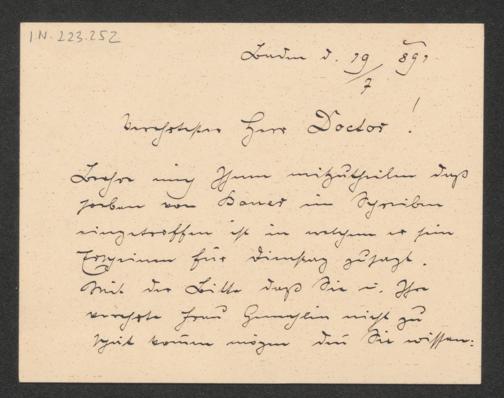 I.N. 223.252
Baden d. 19/7 891
Verehrtester Herr Doctor!
Beehre mich Ihnen mitzutheilen daß
soeben von Bauer ein Schreiben
eingetroffen ist in welchem er sein
Erscheinen für Dienstag zusagt.
Mit der Bitte daß Sie u. Ihre
verehrte Frau Gemahlin nicht zu
spät kommen mögen den Sie wissen: